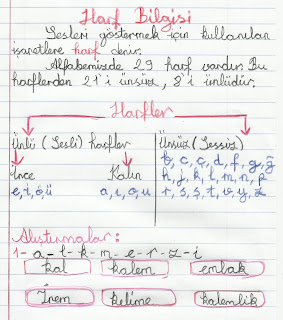 Harf Bilgisi
Sesleri göstermek için kullanılan
işaretlere harf denir.
Alfabemizde 29 harf vardır. Bu
harflerden 21'i ünsüz, 8'i ünlüdür.
Harfler
Ünlü (Sesli) harfler
İnce
Kalın
e, i, ö, ü
a, ı, o, u
Ünsüz (Sessiz)
b, c, ç, d, f, g, ğ
h, j, k, l, m, n, p
r, s, ş, t, v, y, z
Alıştırmalar:
1- a - l - k - m - e - r - z - i
kal
kalem
emlak
İrem
kelime
kalemlik